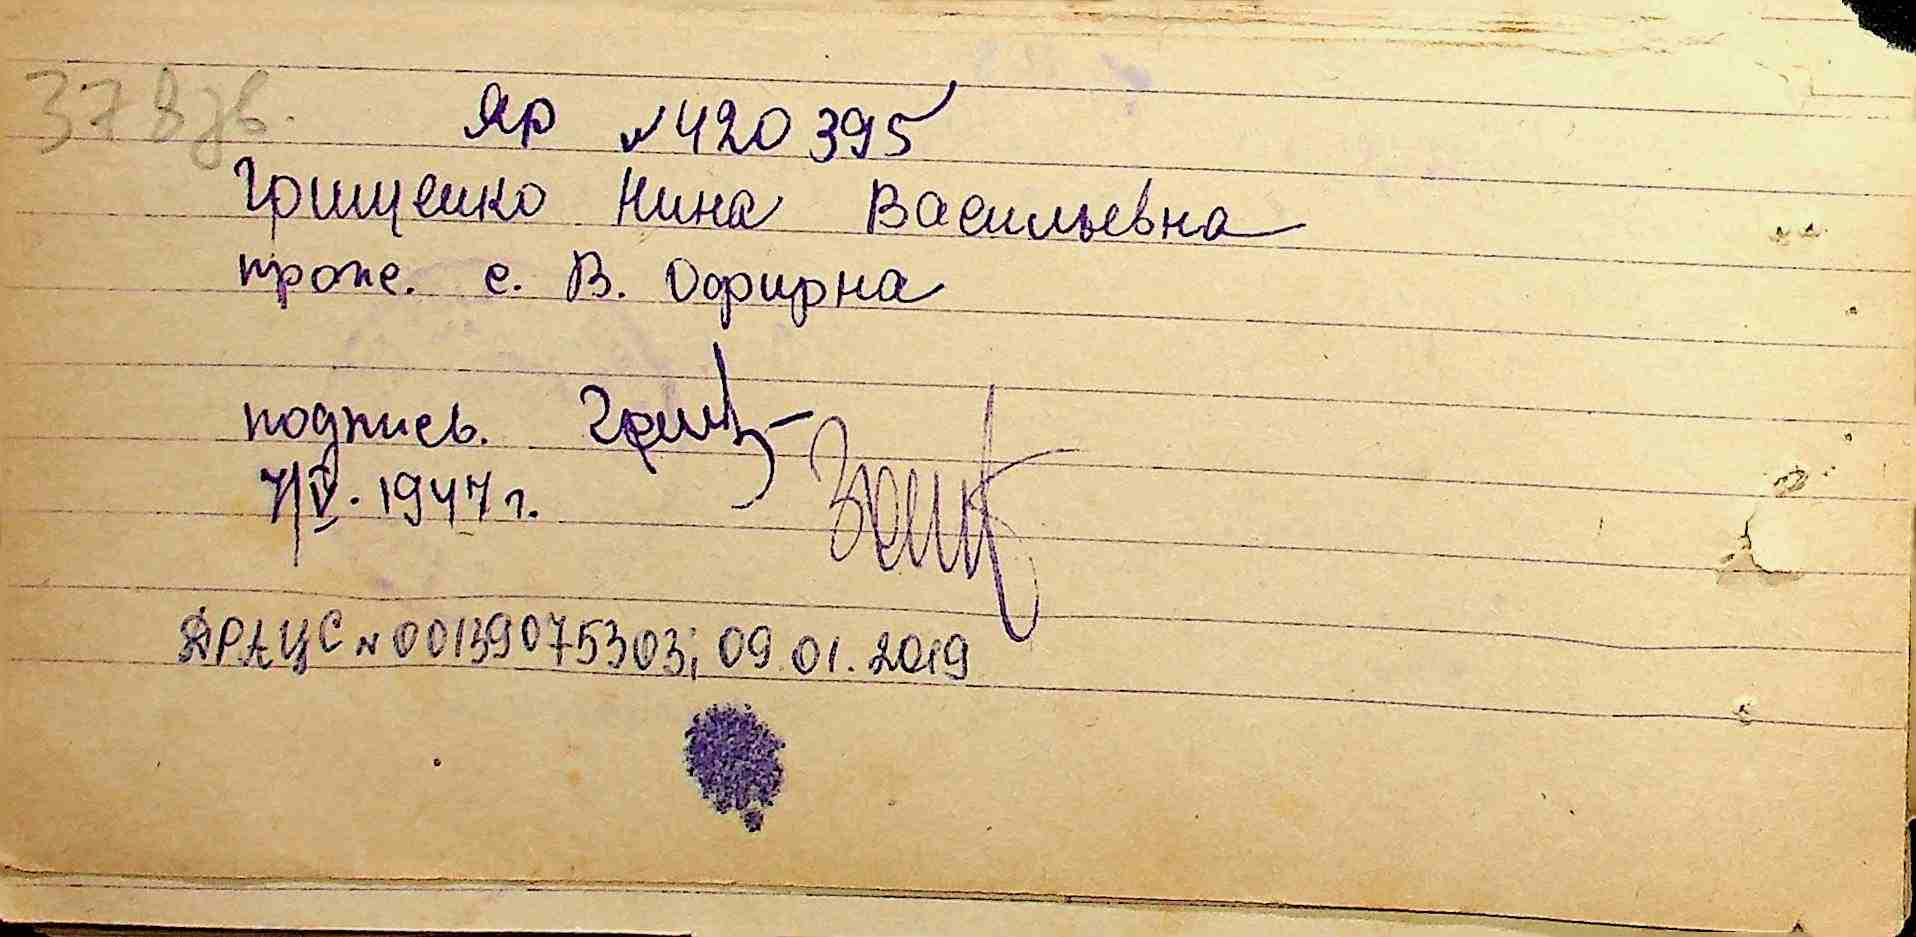 378 зв.
ЯР №420395
Грищенко Нина Васильевна
прож. с. В. Офирна
подпись. Грищ
7/V. 1947 г.
ДРАЦС №00139075303; 09.01.2019